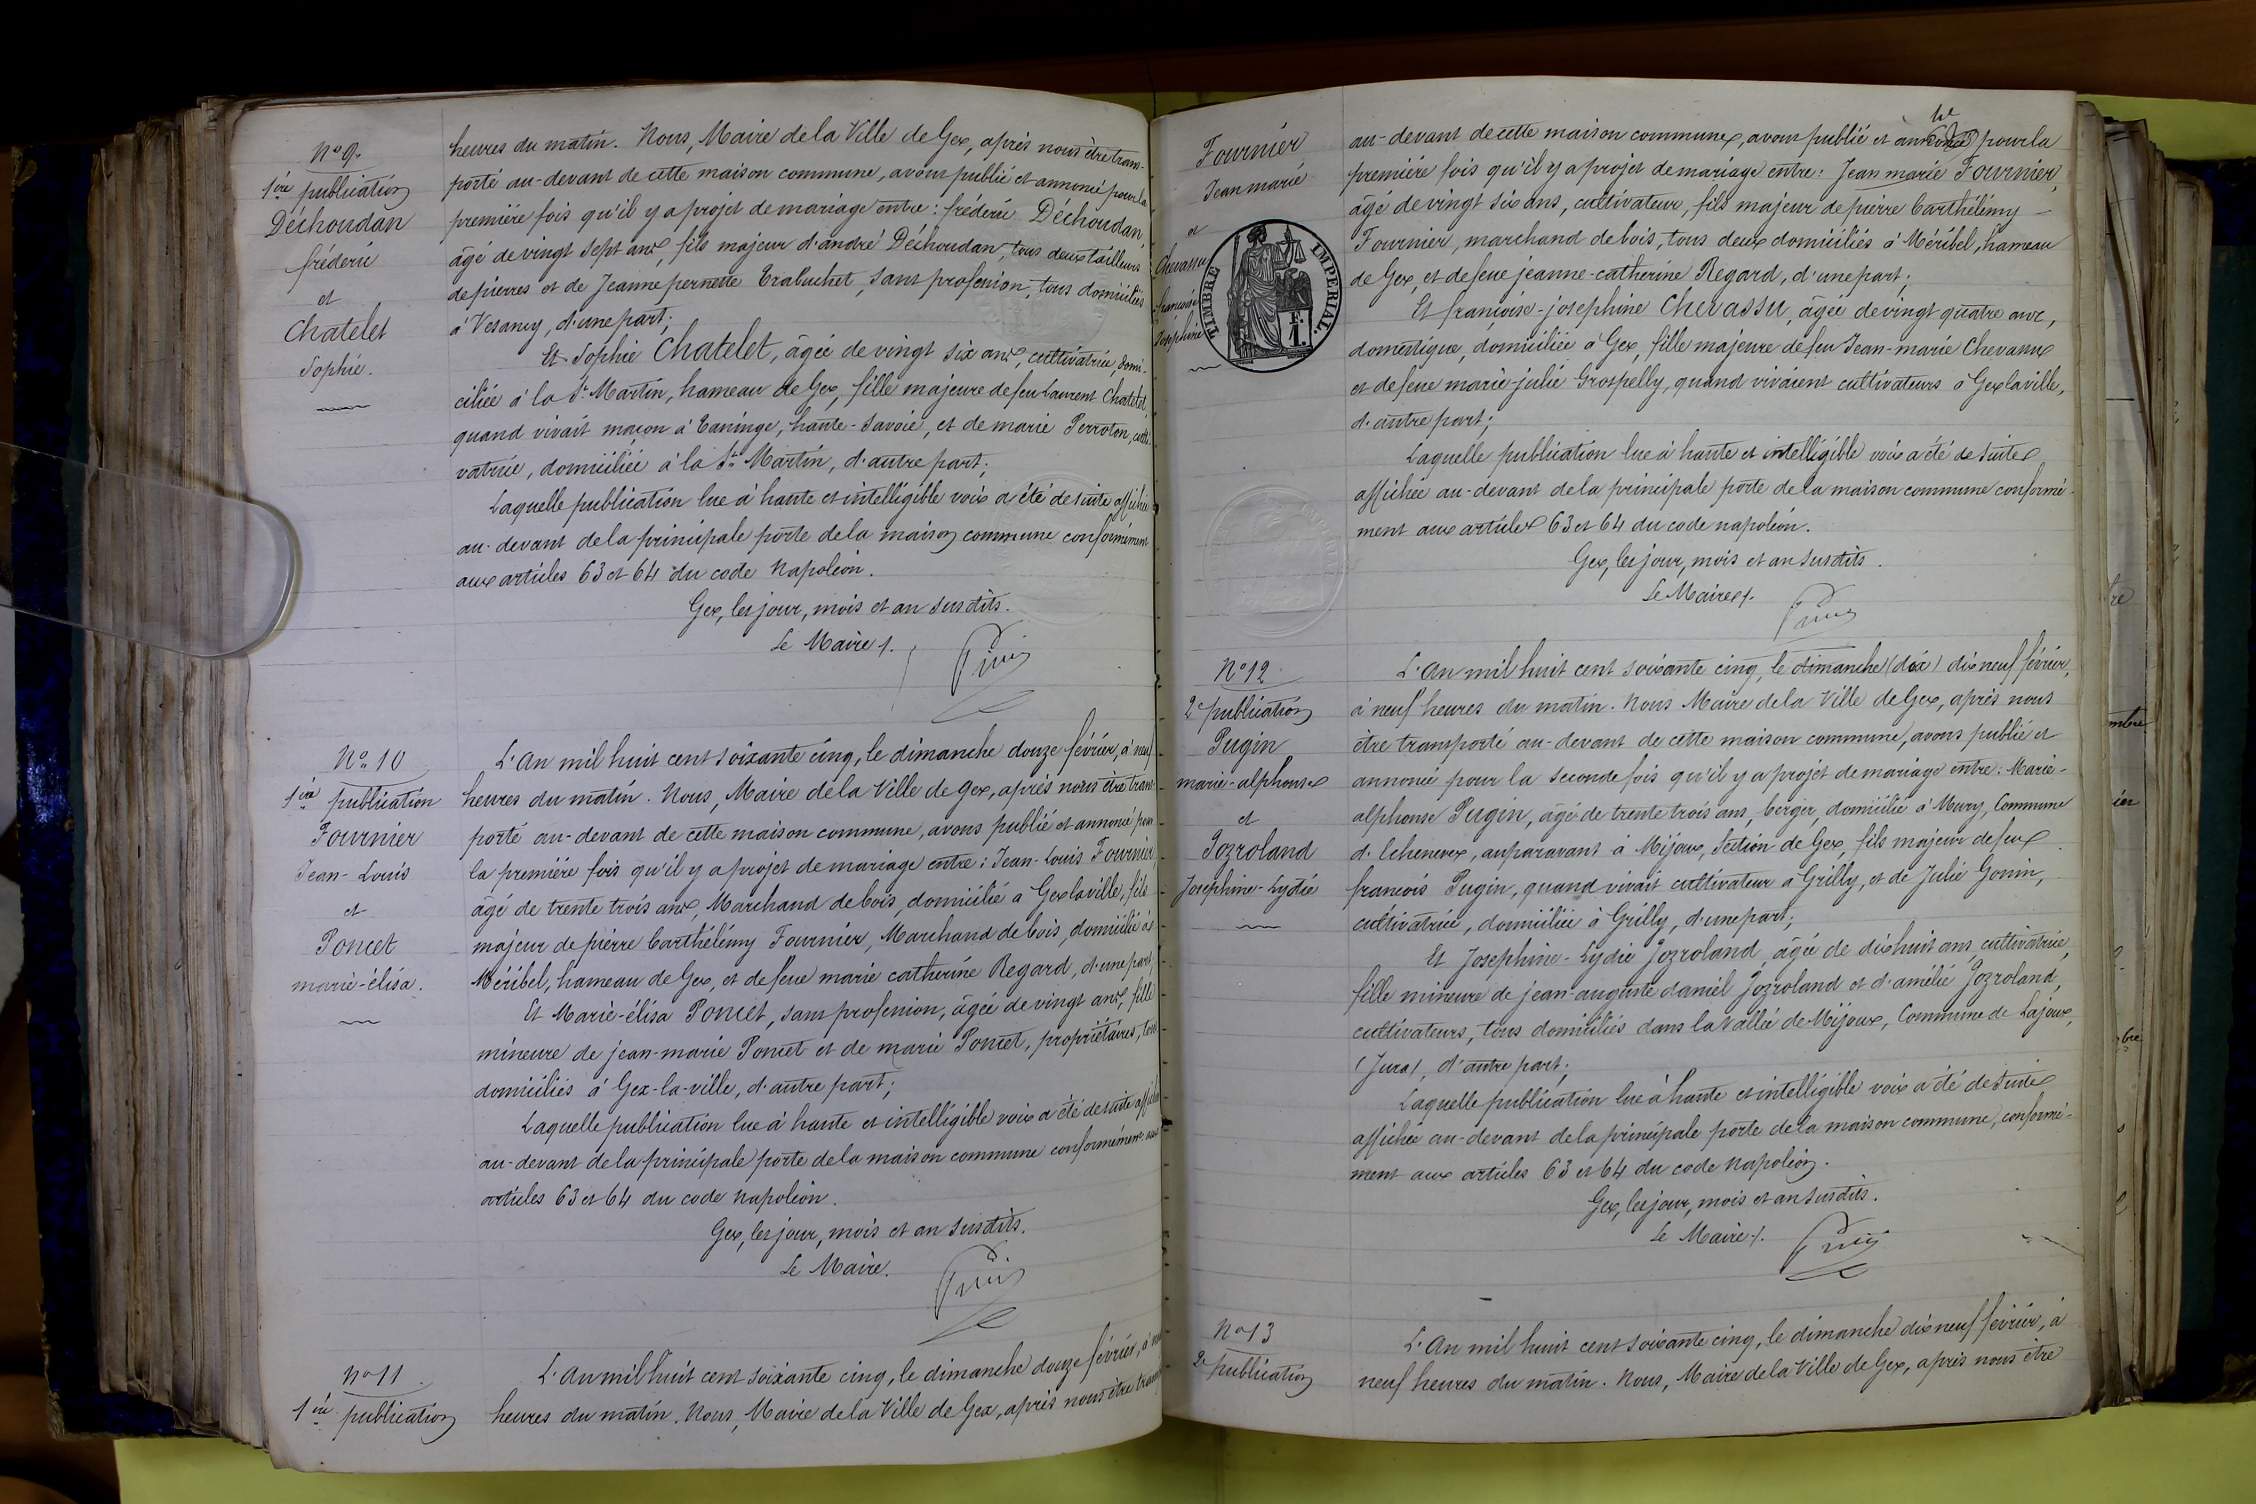 N° 9.
1ère publication
Déchoudan
fréderic
et
Chatelet
Sophie.
heures du matin. Nous, Maire de la Ville de Gex, après nous être trans-
porté au-devant de cette maison commune, avons publié et annoncé pour la
première fois qu'il y a projet de mariage entre : fréderic Déchoudan,
âgé de vingt sept ans, fils majeur d'andré Déchoudan, tous deux tailleurs
de pierres et de Jeanne pernette Trabuchet, sans profession, tous domiciliés
à Vesancy, d'une part;
Et Sophie Chatelet, âgée de vingt six ans, cultivatrice, domi-
ciliée à la St Martin, hameau de Gex, fille majeure de feu Laurent Chatelet,
quand vivait maçon à Taninge, haute-Savoie, et de marie Perroton, culti-
vatrice, domiciliée à la St Martin, d'autre part;
Laquelle publication lue à haute et intelligible voix a été de suite affichée
au-devant de la principale porte de la maison commune conformément
aux articles 63 et 64 du code Napoléon.
Gex, les jour, mois et an susdits.
Le Maire /.
N° 10
1ère publication
Fournier
Jean-Louis
et
Poncet
marie-élisa.
L'An mil huit cent soixante cinq, le dimanche douze février, à neuf
heures du matin. Nous, Maire de la Ville de Gex, après nous être trans-
porté au-devant de cette maison commune, avons publié et annoncé pour
la première fois qu'il y a projet de mariage entre : Jean-Louis Fournier
âgé de trente trois ans, Marchand de bois, domicilié a Gex la ville, fils
majeur de pierre barthélémy Fournier, Marchand de bois, domicilié à
Méribel, hameau de Gex, et de feue marie catherine Regard, d'une part,
Et Marie-élisa Poncet, sans profession, âgée de vingt ans, fille
mineure de jean-marie Poncet et de marie Poncet, propriétaires, tous
domiciliés à Gex-la-ville, d'autre part;
Laquelle publication lue à haute et intelligible voix a été de suite affichée
au-devant de la principale porte de la maison commune conformément aux
articles 63 et 64 du code napoléon.
Gex, les jour, mois et an susdits.
Le Maire.
N° 11
1ère publication
L'An mil huit cent soixante cinq, le dimanche douze février, à neuf
heures du matin. Nous, Maire de la Ville de Gex, après nous être transp
Fournier
Jean marie
et
Chevassu
francoise
Josephine
TIMBRE IMPERIAL.
1 F.
au-devant de cette maison commune, avons publié et annoncé pour la
première fois qu'il y a projet de mariage entre : Jean marie Fournier,
âgé de vingt six ans, cultivateur, fils majeur de pierre barthélémy -
Fournier, marchand de bois, tous deux domiciliés à Méribel, hameau
de Gex, et de feue jeanne-catherine Regard, d'une part;
Et françoise-josephine Chevassu, âgée de vingt quatre ans,
domestique, domiciliée à Gex, fille majeure de feu Jean-marie Chevassu
et de feue marie-julie Grospelly, quand vivaient cultivateurs à Gex la ville,
d'autre part;
Laquelle publication lue à haute et intelligible voix a été de suite
affichée au-devant de la principale porte de la maison commune conformé-
ment aux articles 63 et 64 du code napoléon.
Gex, les jour, mois et an susdits.
Le Maire /.
N° 12.
2e publication
Pugin
marie-alphonse
et
Jozroland
Josephine-Lydie
L'An mil huit cent soixante cinq, le dimanche (dix) dix neuf février,
à neuf heures du matin. Nous Maire de la Ville de Gex, après nous
être transporté au-devant de cette maison commune, avons publié et
annoncé pour la seconde fois qu'il y a projet de mariage entre : Marie-
alphonse Pugin, âgé de trente trois ans, berger, domicilié à Mury, Commune
d'Echenevex, auparavant à Mijoux, Section de Gex, fils majeur de feu
francois Pugin, quand vivait cultivateur à Grilly, et de Julie Gonin,
cultivatrice, domiciliée à Grilly, d'une part;
Et Josephine-Lydie Jozroland, âgée de dix huit ans, cultivatrice,
fille mineure de jean-auguste daniel Jozroland et d'amélie Jozroland,
cultivateurs, tous domiciliés dans la Vallée de Mijoux, Commune de Lajoux,
(Jura), d'autre part;
Laquelle publication lue à haute et intelligible voix a été de suite
affichée au-devant de la principale porte de la maison commune, conformé-
ment aux articles 63 et 64 du code napoléon.
Gex, les jour, mois et an susdits.
Le Maire /.
N° 13
2e publication
L'An mil huit cent soixante cinq, le dimanche dix neuf février, à
neuf heures du matin. Nous, Maire de la Ville de Gex, après nous être